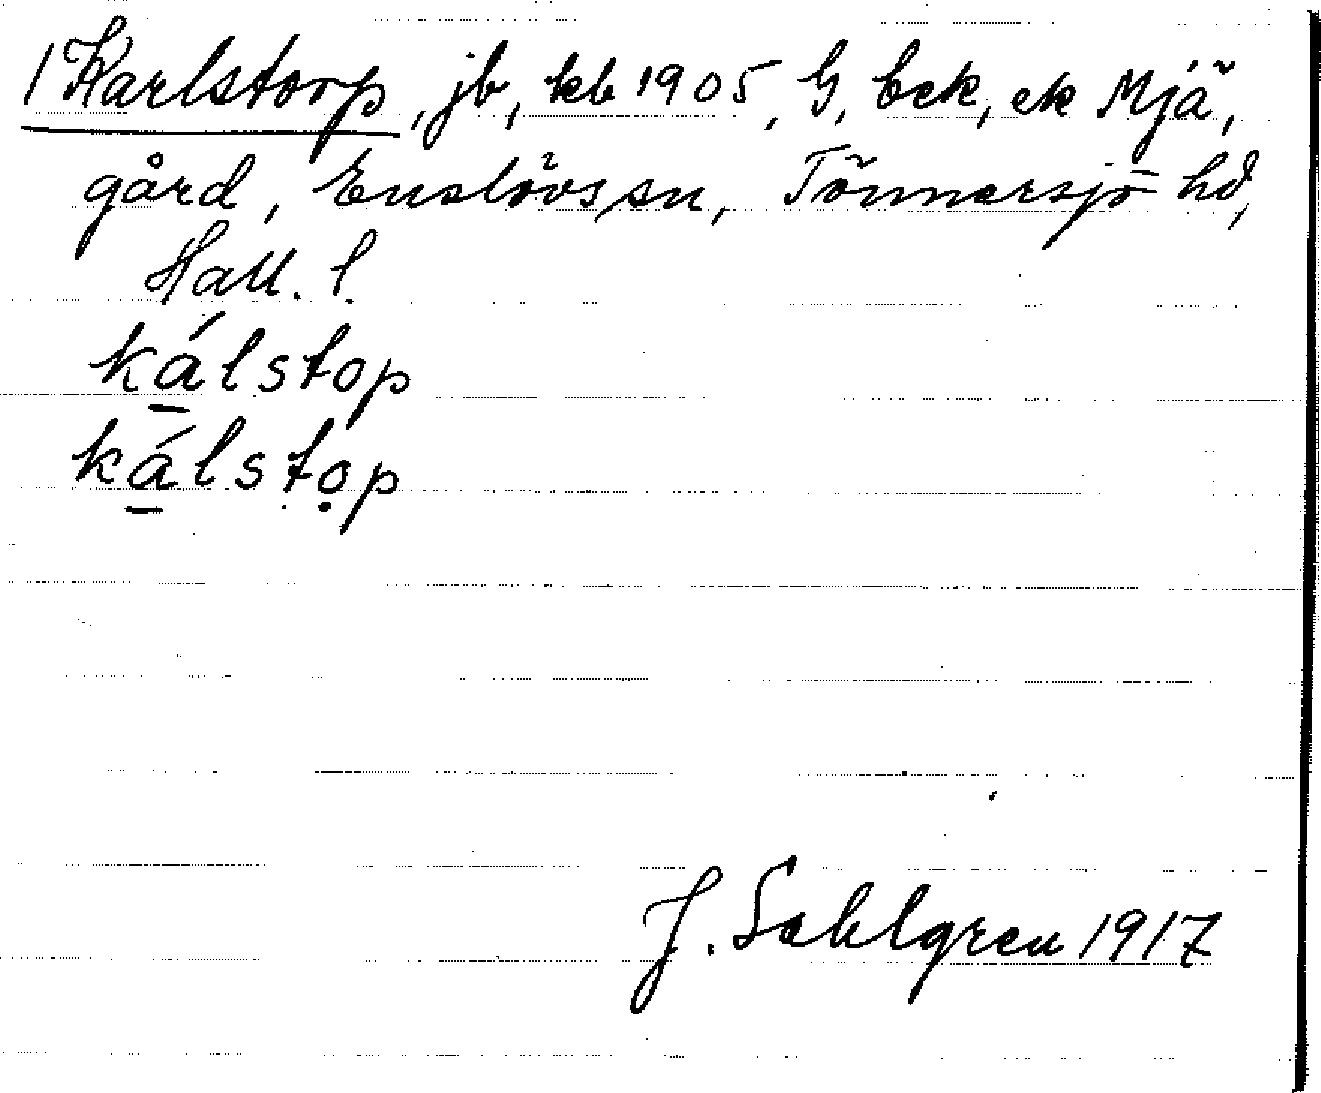 1 Karlstorp, jb, kb 1905, G, bek, ek Mjä,
gård, Enslövs sn, Tönnersjö hd,
Hall. l.
kálstop
kálstop
J. Sahlgren 1917